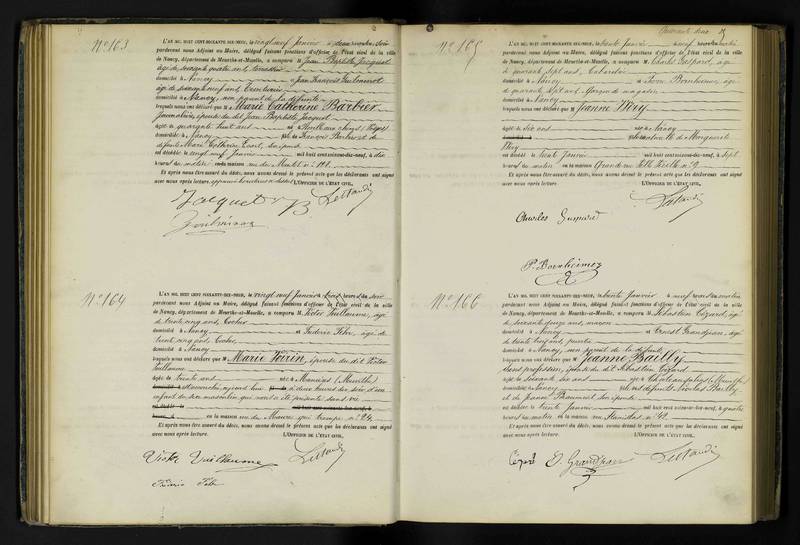 Nº 163
L'AN MIL HUIT CENT SOIXANTE-DIX-NEUF, le vingt neuf Janvier à deux heures du soir
pardevant nous Adjoint au Maire, délégué faisant fonctions d'officier de l'état civil de la ville
de Nancy, département de Meurthe-et-Moselle, a comparu M. Jean Baptiste Jacquot
âgé de soixante quatre ans,
domicilié à Nancy et Jean François
âgé de soixante neuf ans
domicilié à Nancy, non parent de la défunte
lesquels nous ont déclaré que M Marie Catherine Barbier
Journalière, épouse du dit Jean Baptiste Jacquot
âgée de quarante huit ans née à (Vosges)
domiciliée à Nancy fille de François Barbier et de
défunte Marie Catherine
est décédée le vingt neuf Janvier mil huit cent soixante-dix-neuf, à dix
heures du matin en la maison rue de
Et après nous être assuré du décès, nous avons dressé le présent acte que les déclarants ont signé
avec nous après lecture.
L'OFFICIER DE L'ÉTAT CIVIL,
Jacquot
Nº 164
L'AN MIL HUIT CENT SOIXANTE-DIX-NEUF, le vingt neuf Janvier à trois heures du soir
pardevant nous Adjoint au Maire, délégué faisant fonctions d'officier de l'état civil de la ville
de Nancy, département de Meurthe-et-Moselle, a comparu M. Victor Vuillaume, âgé
de trente cinq ans, Cocher
domicilié à Nancy et Frédéric Fehr, âgé de
trente cinq ans, Cocher,
domicilié à Nancy
lesquels nous ont déclaré que M Marie Poirin, épouse du dit Victor
Vuillaume
âgée de trente ans née à (Meurthe)
domiciliée à
enfant du sexe masculin qui nous a été présenté sans vie
en la maison rue du Maure qui trompe nº 24
Et après nous être assuré du décès, nous avons dressé le présent acte que les déclarants ont signé
avec nous après lecture.
L'OFFICIER DE L'ÉTAT CIVIL,
Victor Vuillaume
Nº 165
L'AN MIL HUIT CENT SOIXANTE-DIX-NEUF, le trente Janvier à neuf heures du matin
pardevant nous Adjoint au Maire, délégué faisant fonctions d'officier de l'état civil de la ville
de Nancy, département de Meurthe-et-Moselle, a comparu M. Charles Gaspard, âgé
de quarante sept ans, Cabaretier
domicilié à Nancy et Pierre Bornheimer, âgé
de quarante sept ans, Garçon de magasin
domicilié à Nancy
lesquels nous ont déclaré que M Jeanne Méry
âgée de six ans née à Nancy
fille naturelle de Marguerite
Méry
est décédée le trente Janvier mil huit cent soixante-dix-neuf, à sept
heures du matin en la maison Grande rue Ville Vieille nº 9
Et après nous être assuré du décès, nous avons dressé le présent acte que les déclarants ont signé
avec nous après lecture.
L'OFFICIER DE L'ÉTAT CIVIL,
Charles Gaspard
P. Bornheimer
Nº 166
L'AN MIL HUIT CENT SOIXANTE-DIX-NEUF, le trente Janvier à neuf heures du matin
pardevant nous Adjoint au Maire, délégué faisant fonctions d'officier de l'état civil de la ville
de Nancy, département de Meurthe-et-Moselle, a comparu M. Sébastien Cézard, âgé
de soixante quinze ans, maçon
domicilié à Nancy et Ernest Grandjean, âgé
de trente huit ans, peintre
domicilié à Nancy, non parent de la défunte
lesquels nous ont déclaré que M Jeanne Bailly
sans profession, épouse du dit Sébastien Cézard
âgée de soixante six ans née à (Meurthe)
domiciliée à Nancy fille des défunts Nicolas Bailly
et de Jeanne son épouse
est décédée le trente Janvier mil huit cent soixante-dix-neuf, à quatre
heures du matin en la maison rue Stanislas nº 42
Et après nous être assuré du décès, nous avons dressé le présent acte que les déclarants ont signé
avec nous après lecture.
L'OFFICIER DE L'ÉTAT CIVIL,
E. Grandjean